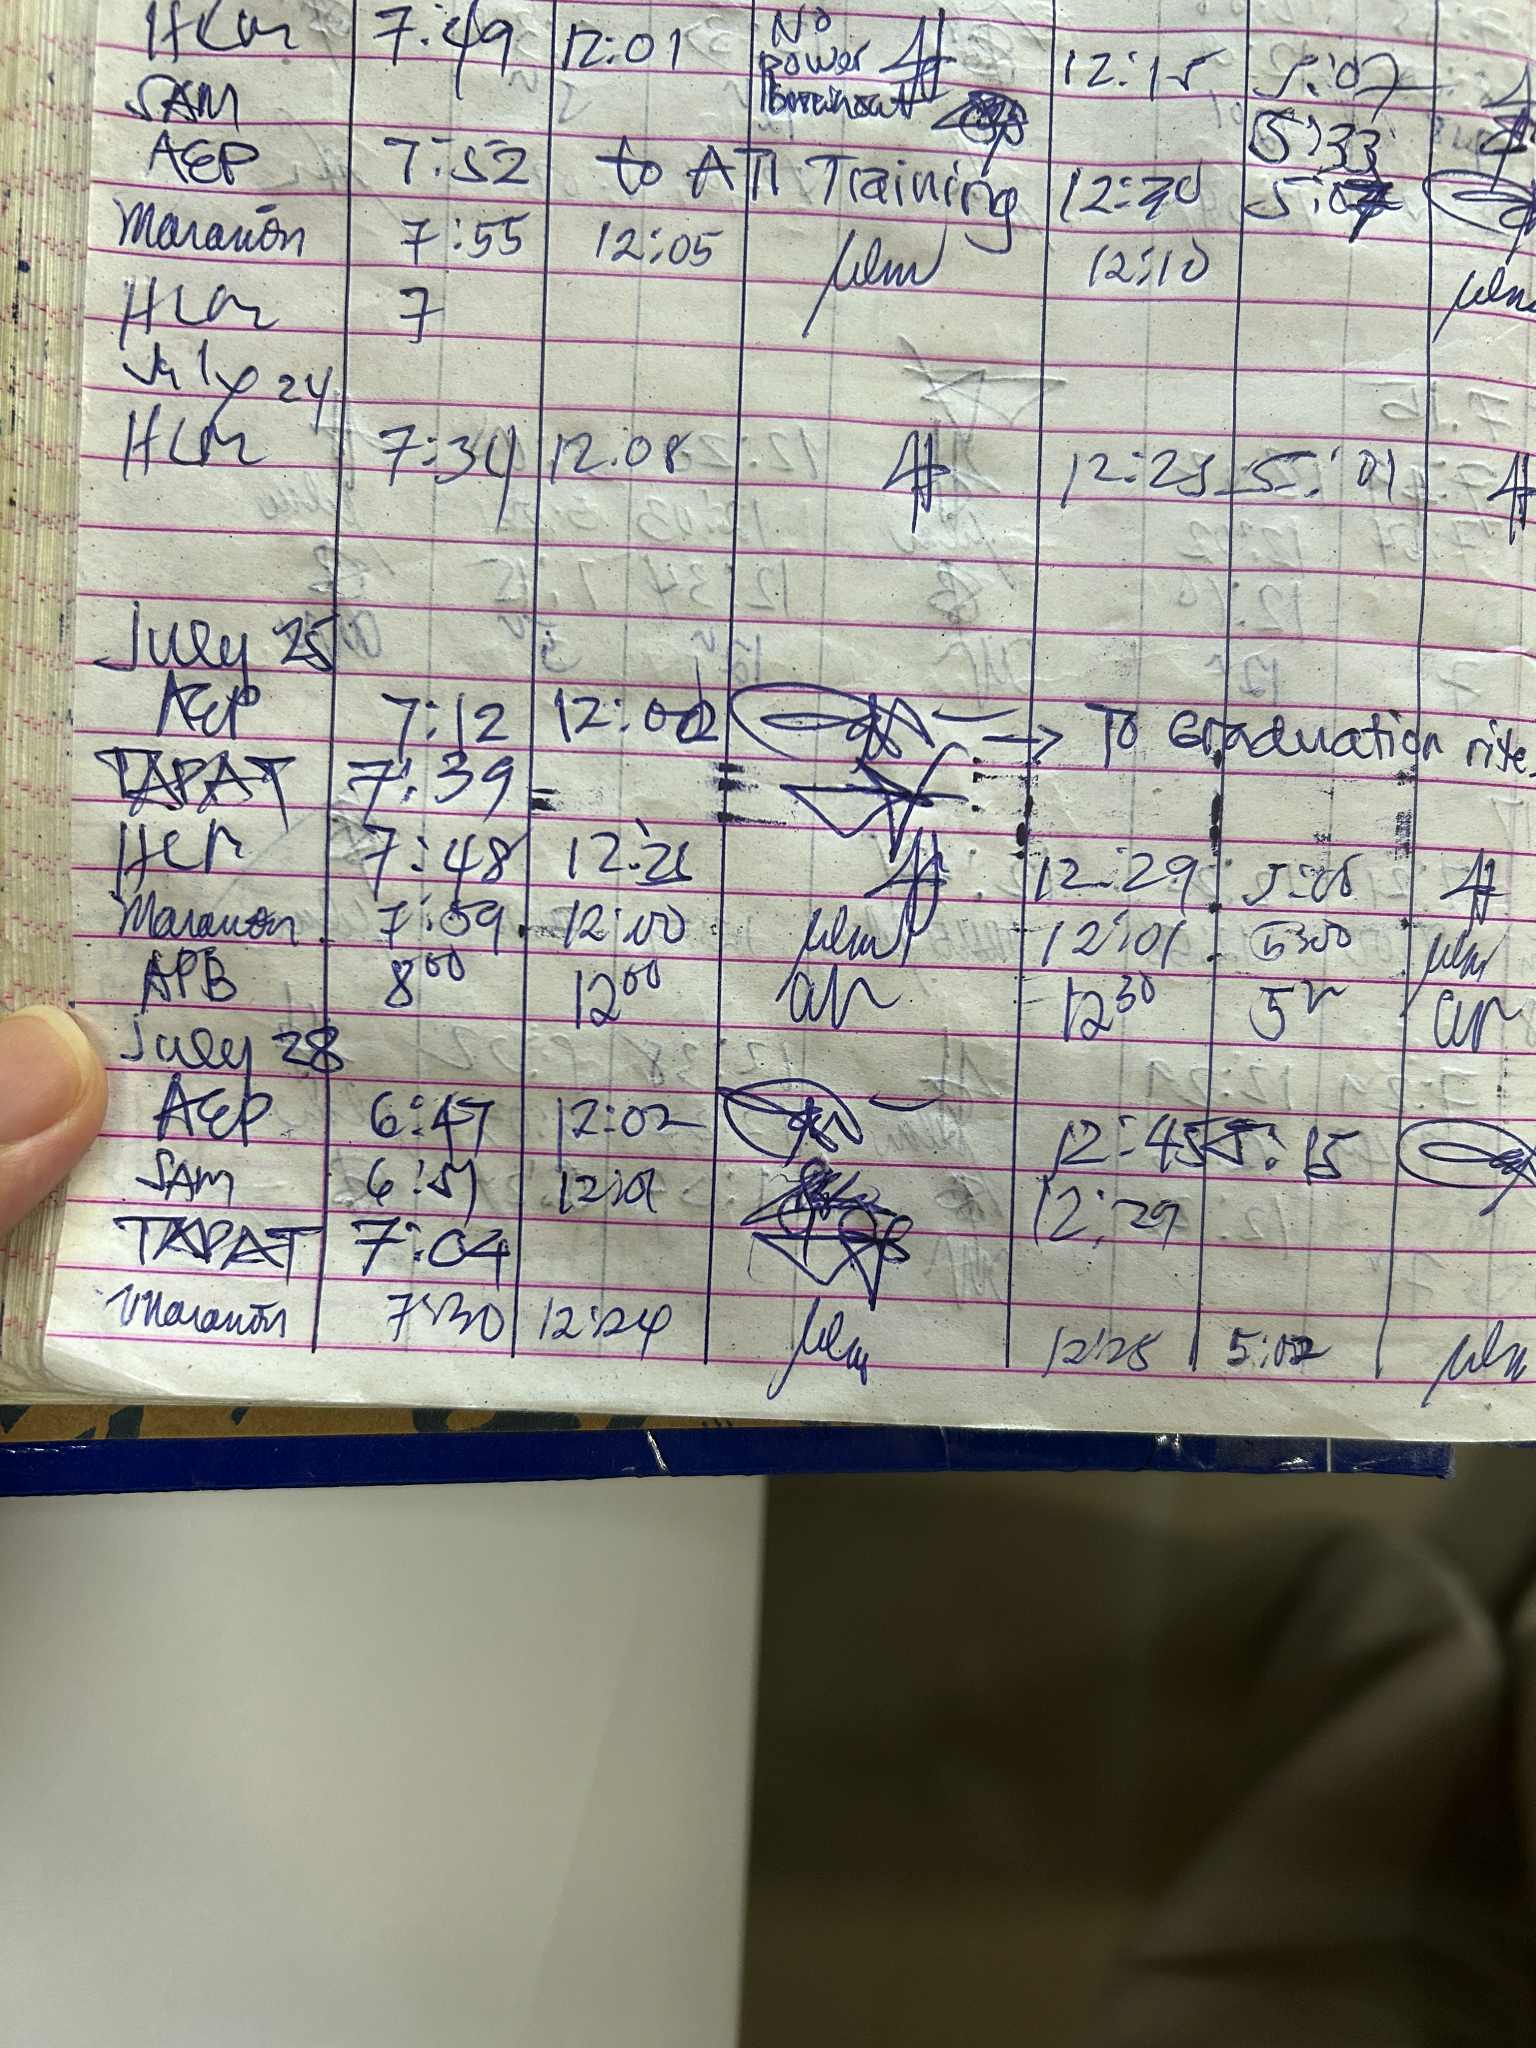 HLM 7:49 12:01 No power 12:15 5:07
SAM 5:33
AEP 7:52 to ATI Training 12:30
Marañon 7:55 12:05 12:10
HLM 7
July 24
HLM 7:34 12:08 12:23 5:01
July 25
AEP 7:12 12:02 → To Graduation rite
TAPAT 7:39
HLM 7:48 12:29
Marañon 7:59 12:00 12:01 5:00
APB 8:00 12:00 12:30
July 28
AEP 6:47 12:02 12:45 5:15
SAM 6:51 12:01 12:29
TAPAT 7:04
Marañon 7:30 12:24 12:25 5:02